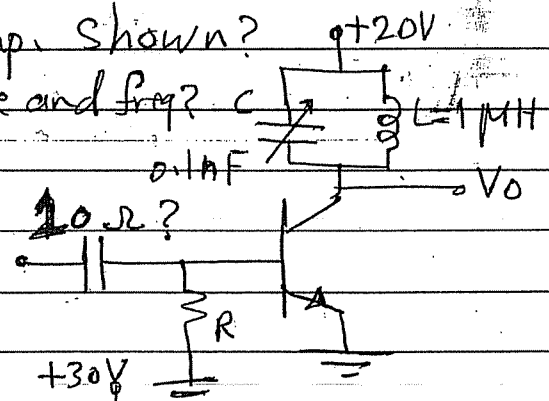 p. Shown? +20V
e and freq? C L=1 μH
0.1nF
Vo
10 Ω?
R
+30V